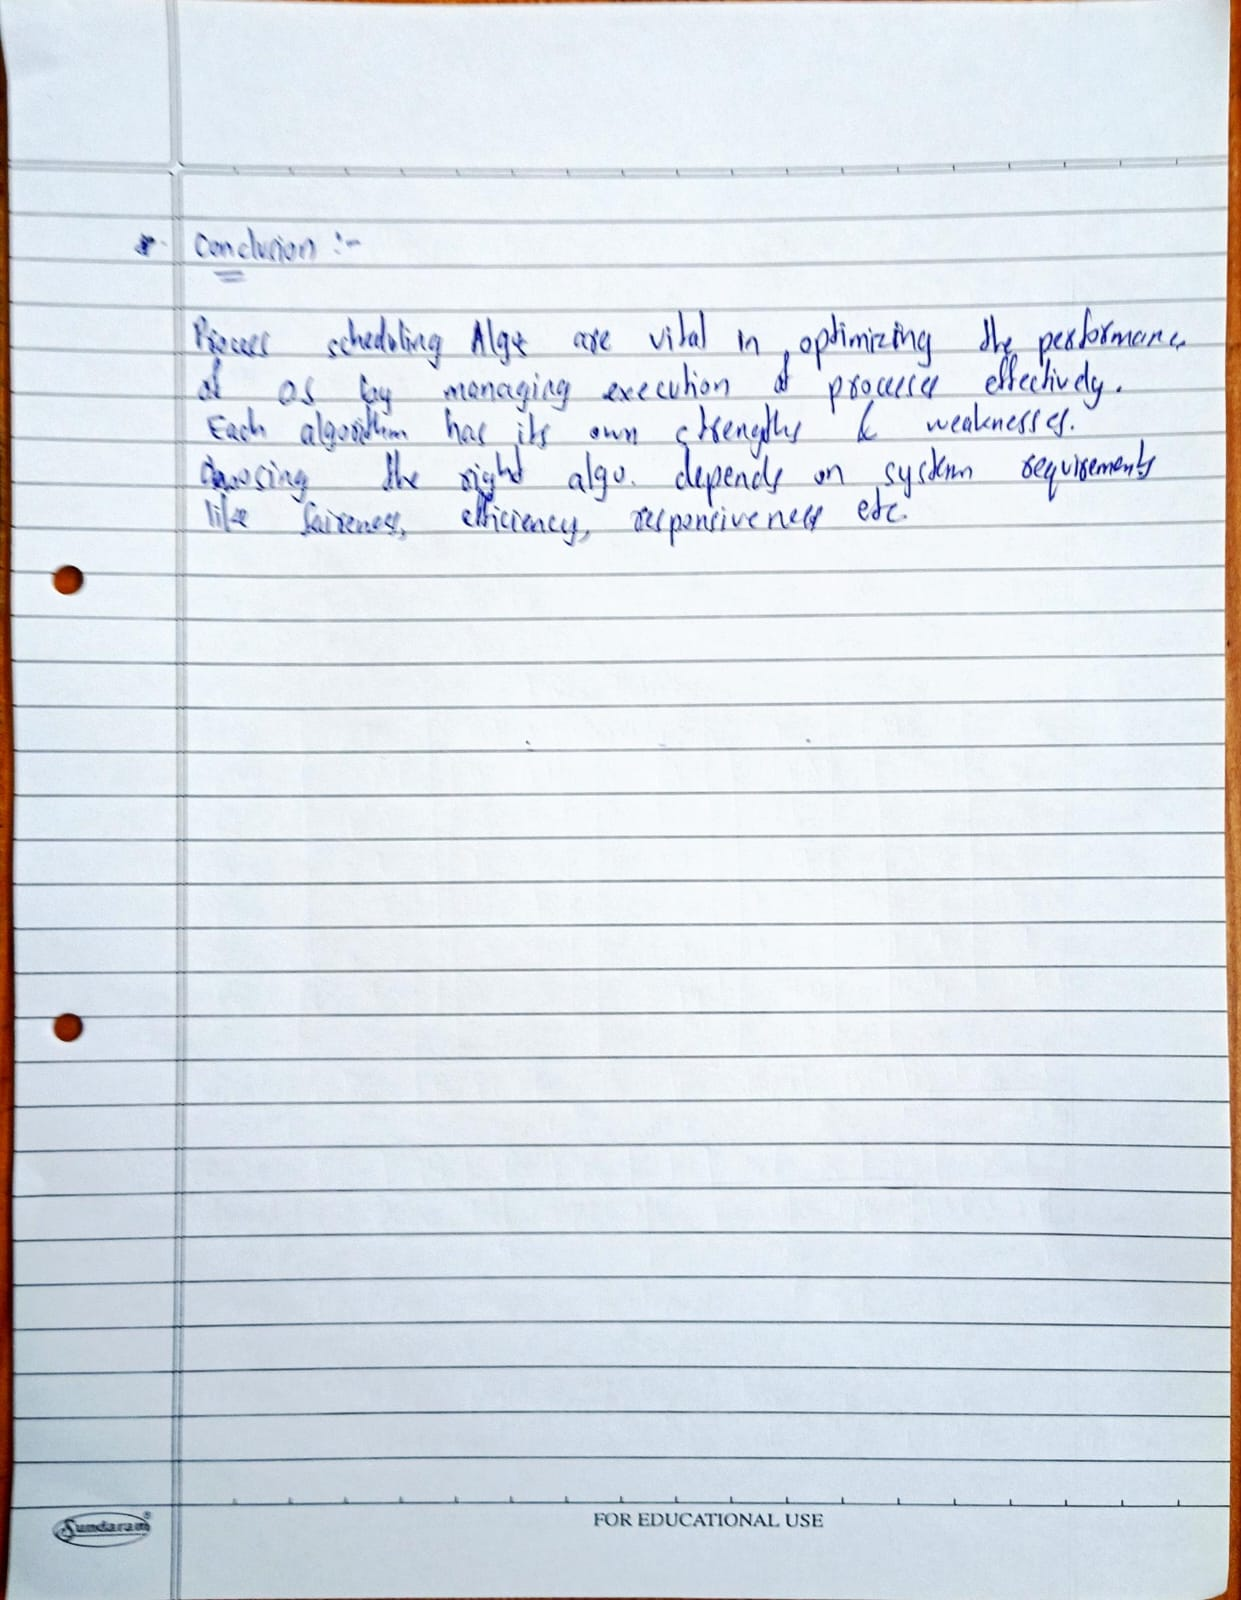 Conclusion :-
Process scheduling Algo are vital in optimizing the performance
of OS by managing execution of processes effectively.
Each algorithm has its own strengths & weaknesses.
Choosing the right algo. depends on system requirements
like faireness, efficiency, responsiveness etc.
Sundaram®
FOR EDUCATIONAL USE